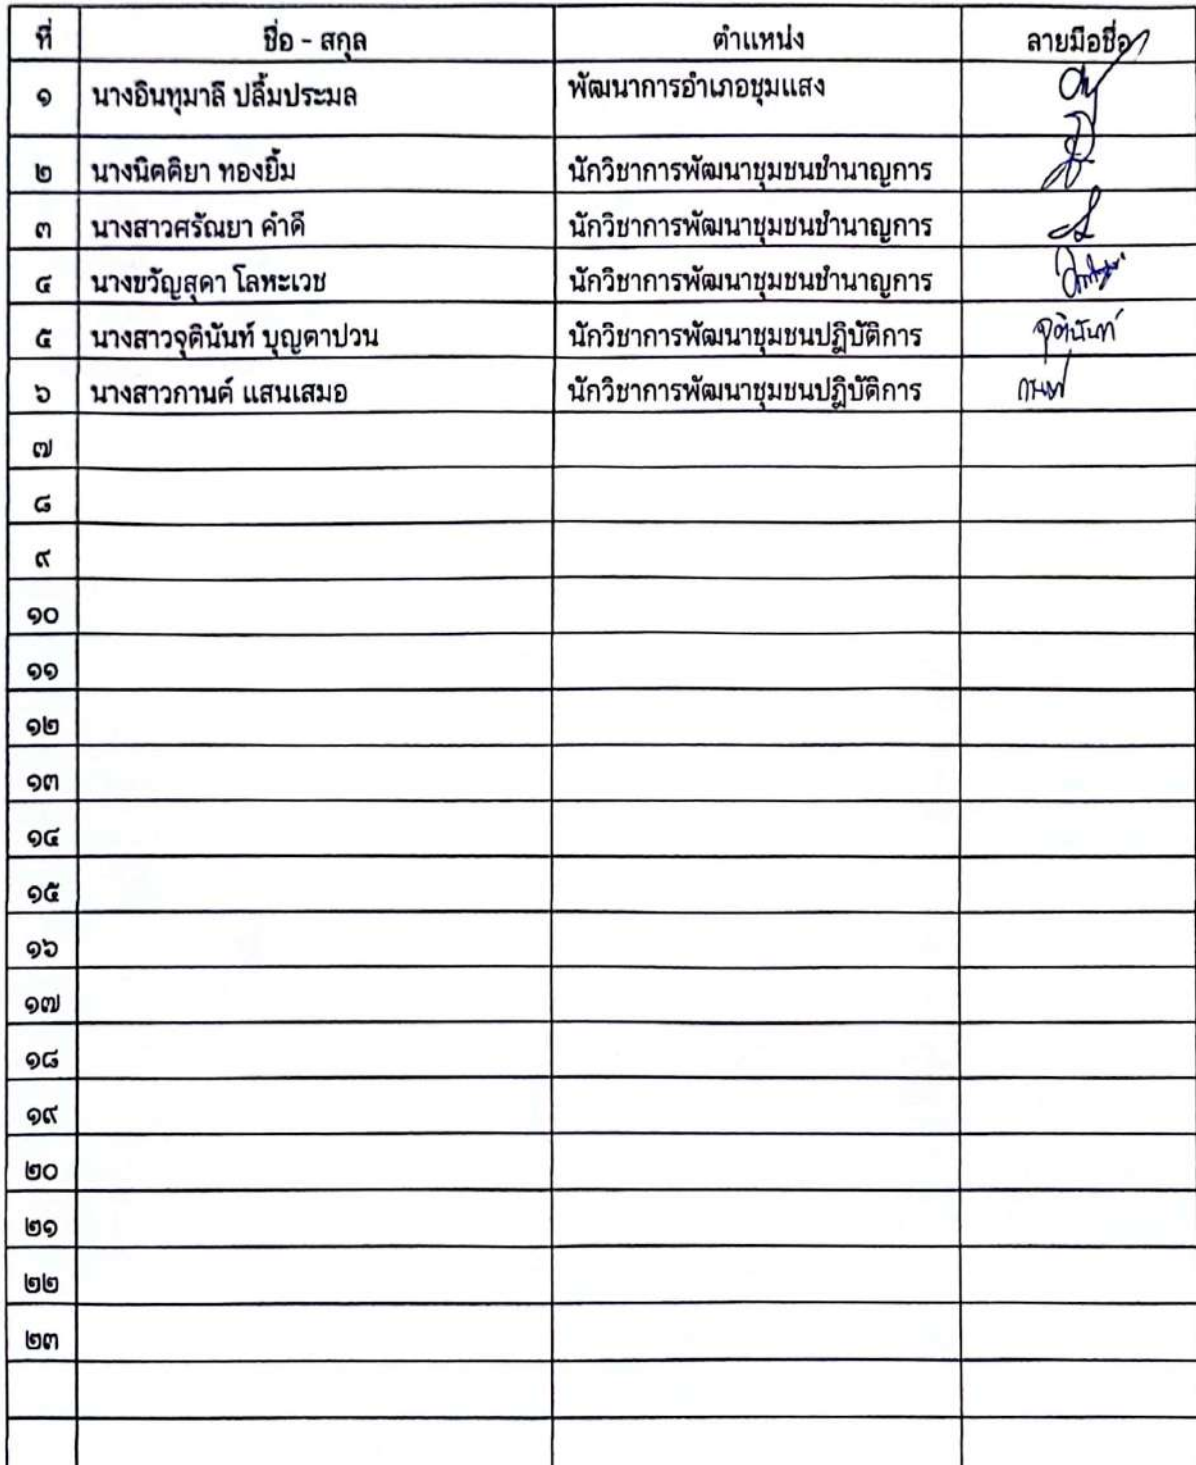 ที่ ชื่อ - สกุล ตำแหน่ง ลายมือชื่อ
๑ นางอินทุมาลี ปลื้มประมล พัฒนาการอำเภอชุมแสง
๒ นางนิตติยา ทองยิ้ม นักวิชาการพัฒนาชุมชนชำนาญการ
๓ นางสาวศรัณยา คำดี นักวิชาการพัฒนาชุมชนชำนาญการ
๔ นางขวัญสุดา โลหะเวช นักวิชาการพัฒนาชุมชนชำนาญการ
๕ นางสาวจุตินันท์ บุญตาปวน นักวิชาการพัฒนาชุมชนปฎิบัติการ จุตินันท์
๖ นางสาวกานต์ แสนเสมอ นักวิชาการพัฒนาชุมชนปฎิบัติการ กานต์
๗
๘
๙
๑๐
๑๑
๑๒
๑๓
๑๔
๑๕
๑๖
๑๗
๑๘
๑๙
๒๐
๒๑
๒๒
๒๓